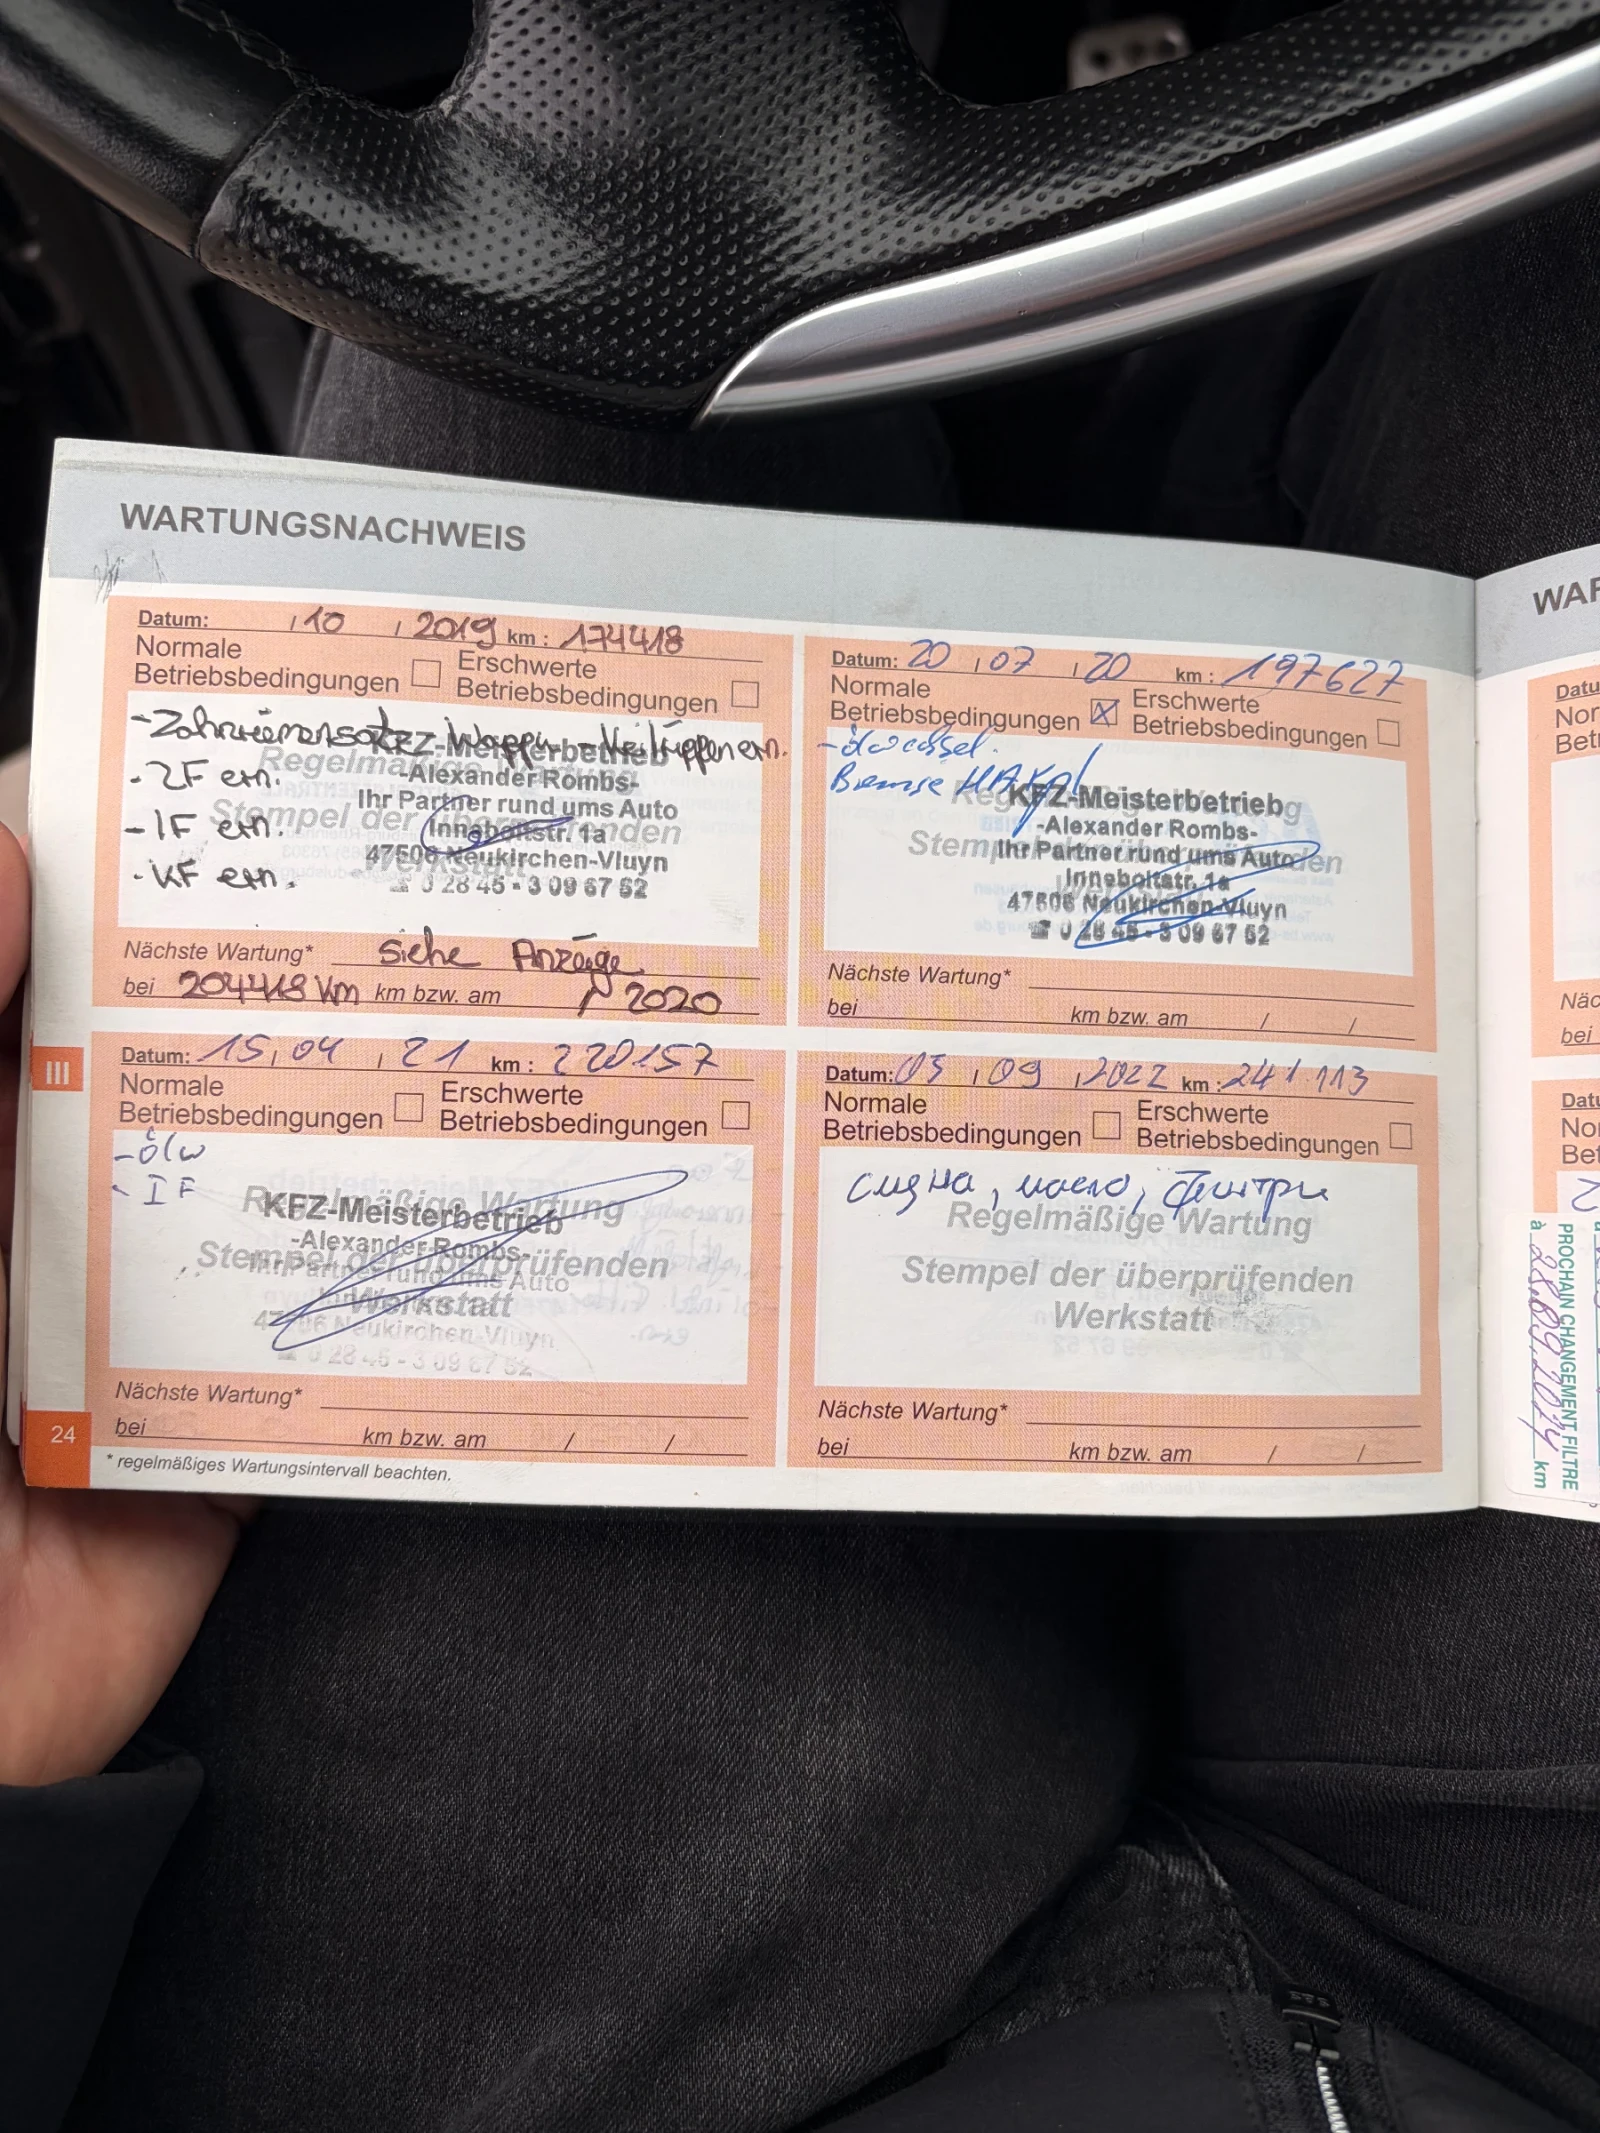 WARTUNGSNACHWEIS
Datum: , 10 , 2019 km : 174418
Normale
Betriebsbedingungen
Erschwerte
Betriebsbedingungen
- Zahnriemensatz
- ern.
Regelmäßige Wartung
KFZ-Meisterbetrieb
-Alexander Rombs-
- ZF ern.
Ihr Partner rund ums Auto
Stempel der überprüfenden
- IF ern.
Inneboltstr. 1a
47506 Neukirchen-Vluyn
Werkstatt
- KF ern.
☎ 0 28 45 - 3 09 67 52
Nächste Wartung* siehe Anzeige
bei 204418 km km bzw. am / 2020
Datum: 20 , 07 , 20 km : 197627
Normale
Betriebsbedingungen
Erschwerte
Betriebsbedingungen
Bremse HA
Regelmäßige Wartung
KFZ-Meisterbetrieb
-Alexander Rombs-
Stempel der überprüfenden
Ihr Partner rund ums Auto
Inneboltstr. 1a
Werkstatt
47506 Neukirchen-Vluyn
☎ 0 28 45 - 3 09 67 52
Nächste Wartung*
bei km bzw. am / /
III
Datum: 15, 04 , 21 km : 220157
Normale
Betriebsbedingungen
Erschwerte
Betriebsbedingungen
- Ölw
- IF
Regelmäßige Wartung
KFZ-Meisterbetrieb
-Alexander Rombs-
Stempel der überprüfenden
Ihr Partner rund ums Auto
Inneboltstr. 1a
Werkstatt
47506 Neukirchen-Vluyn
☎ 0 28 45 - 3 09 67 52
Nächste Wartung*
bei km bzw. am / /
Datum: 05 , 09 , 2022 km : 241.113
Normale
Betriebsbedingungen
Erschwerte
Betriebsbedingungen
смена, масло, фильтри
Regelmäßige Wartung
Stempel der überprüfenden
Werkstatt
Nächste Wartung*
bei km bzw. am / /
24
* regelmäßiges Wartungsintervall beachten.
WAR
Datu
Nor
Betr
Näc
bei
Datu
Nor
Bet
PROCHAIN CHANGEMENT FILTRE
à km